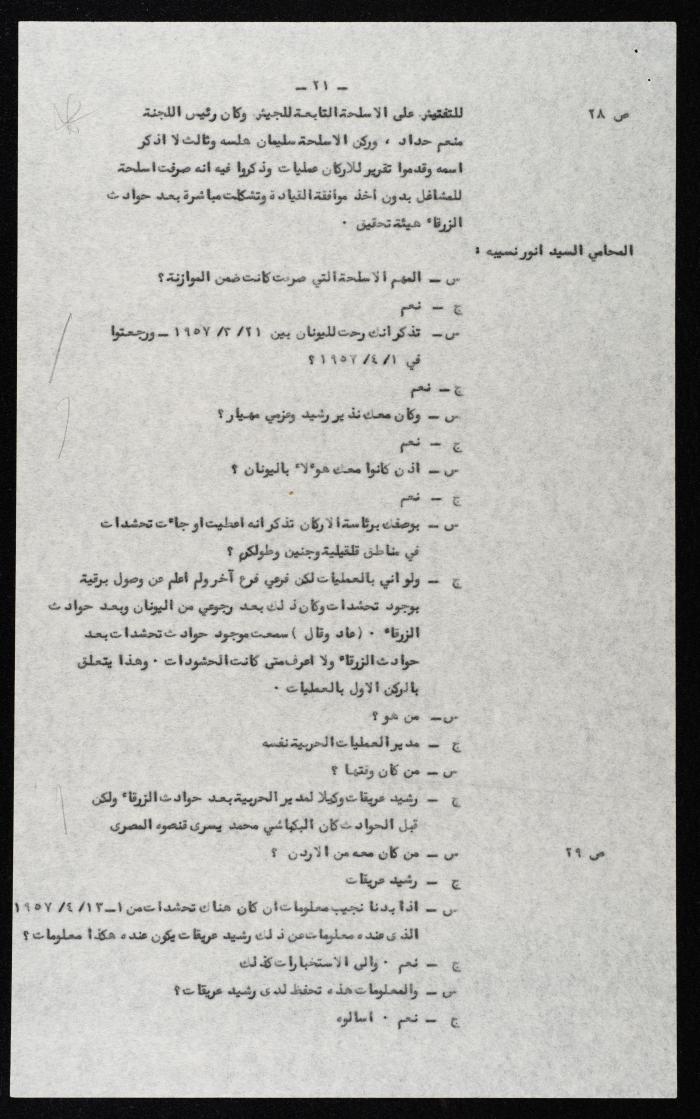 - ٢١ -
ص ٢٨ للتفتيش على الاسلحة التابعة للجيش وكان رئيس اللجنة
منعم حداد ، وركن الاسلحة سليمان هلسه وثالث لا اذكر
اسمه وقدموا تقرير للاركان عمليات وذكروا فيه انه صرفت اسلحة
للمشاغل بدون اخذ موافقة القيادة وتشكلت مباشرة بعد حوادث
الزرقاء هيئة تحقيق .
المحامي السيد انور نسيبه :
س - المهم الاسلحة التي صرفت كانت ضمن الموازنة ؟
ج - نعم
س - تذكر انك رحت لليونان بين ٢١/ ٣/ ١٩٥٧ - ورجعتوا
في ١/ ٤/ ١٩٥٧ ؟
ج - نعم
س - وكان معك نذير رشيد وعزمي مهيار ؟
ج - نعم
س - اذن كانوا معك هوءلاء باليونان ؟
ج - نعم
س - بوصفك برئاسة الاركان تذكر انه اعطيت او جاءت تحشدات
في مناطق قلقيلية وجنين وطولكرم ؟
ج - ولو اني بالعمليات لكن فرعي فرع آخر ولم اعلم عن وصول برقية
بوجود تحشدات وكان ذلك بعد رجوعي من اليونان وبعد حوادث
الزرقاء . ( عاد وقال ) سمعت موجود حوادث تحشدات بعد
حوادث الزرقاء ولا اعرف متى كانت الحشودات . وهذا يتعلق
بالركن الاول بالعمليات .
س - من هو ؟
ج - مدير العمليات الحربية نفسه
س - من كان وقتها ؟
ج - رشيد عريقات وكيلا لمدير الحربية بعد حوادث الزرقاء ولكن
قبل الحوادث كان البكباشي محمد يسرى قنصوه المصرى
ص ٢٩ س - من كان معه من الاردن ؟
ج - رشيد عريقات
س - اذا بدنا نجيب معلومات ان كان هناك تحشدات من ١-١٣/ ٤/ ١٩٥٧
الذى عنده معلومات عن ذلك رشيد عريقات يكون عنده هكذا معلومات ؟
ج - نعم . والى الاستخبارات كذلك
س - والمعلومات هذه تحفظ لدى رشيد عريقات ؟
ج - نعم . اسالوه